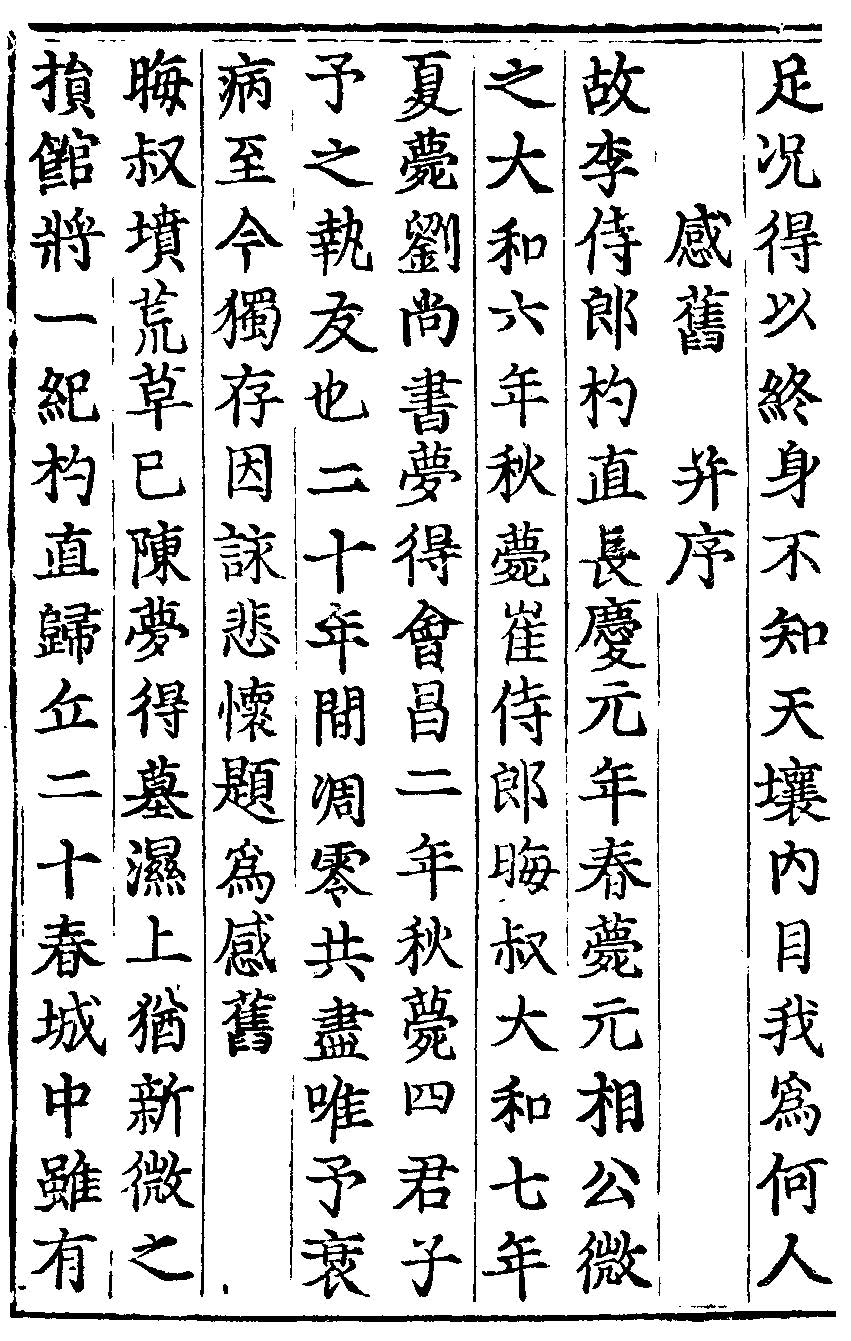 足况得以終身不知天壤内目我爲何人
感舊　并序
故李侍郎杓直長慶元年春薨元相公微
之大和六年秋薨崔侍郎晦叔大和七年
夏薨劉尚書夢得會昌二年秋薨四君子
予之執友也二十年間凋零共盡唯予衰
病至今獨存因詠悲懷題爲感舊
晦叔墳荒草已陳夢得墓濕上猶新微之
捐館將一紀杓直歸丘二十春城中雖有